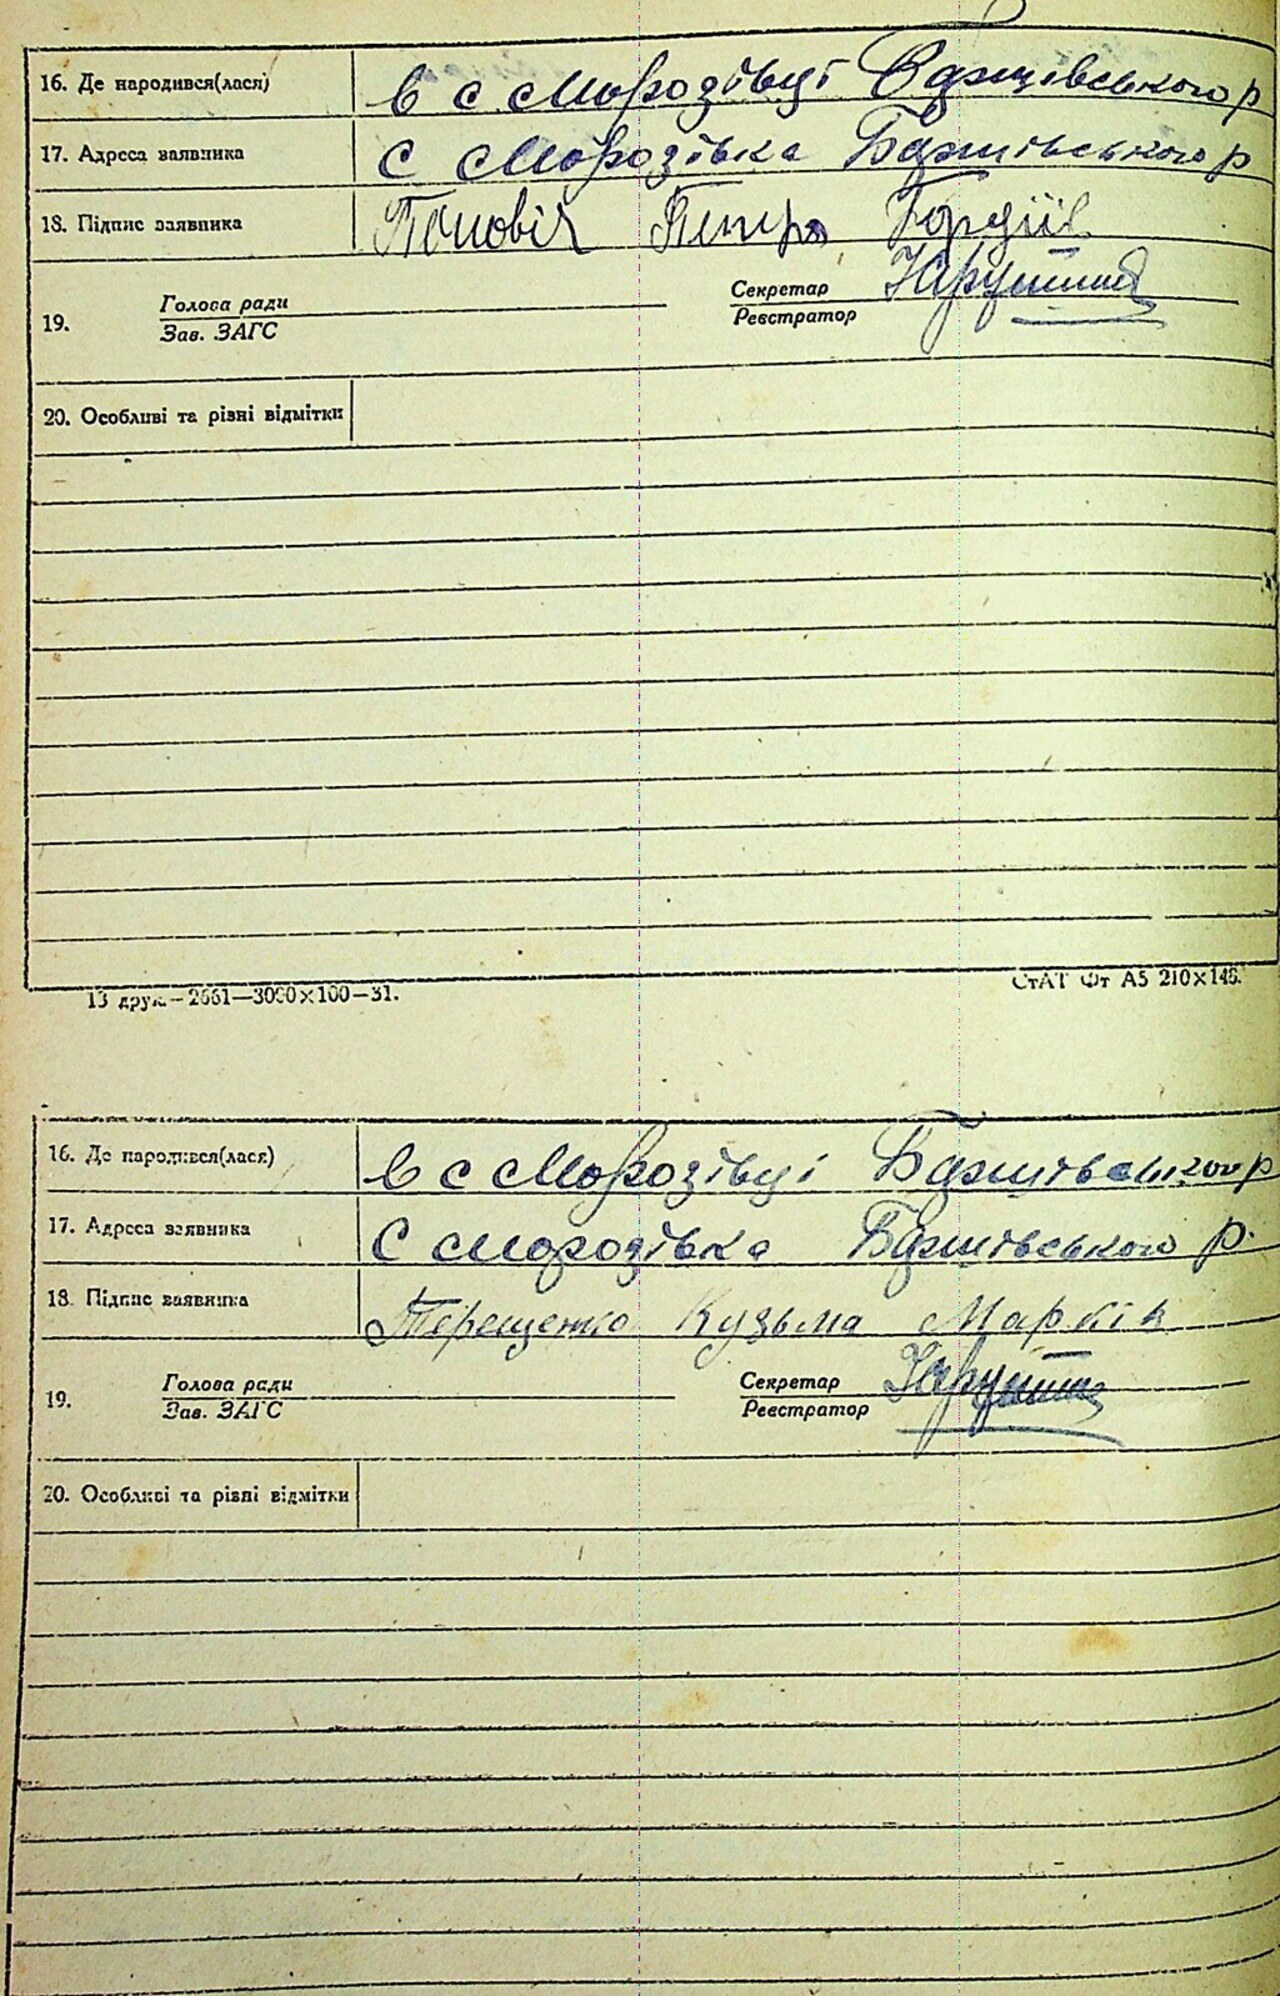 16. Де народився(лася) в с Морозівці Баришівського р
17. Адреса заявника С Морозівка Баришівського р
18. Підпис заявника Петро Гордіїв
19. Голова ради Секретар
Зав. ЗАГС Реєстратор
20. Особливі та різні відмітки
13 друк.—2661—3000×100—31. СтАТ Фт А5 210×148.
16. Де народився(лася) в с Морозівці Баришівського р
17. Адреса заявника С Морозівка Баришівського р.
18. Підпис заявника Терещенко Кузьма Марків
19. Голова ради Секретар
Зав. ЗАГС Реєстратор
20. Особливі та різні відмітки